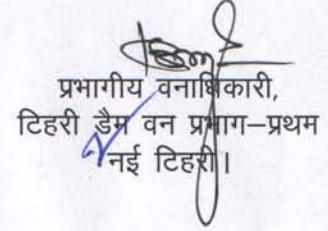 प्रभागीय वनाधिकारी,
टिहरी डैम वन प्रभाग–प्रथम
नई टिहरी।